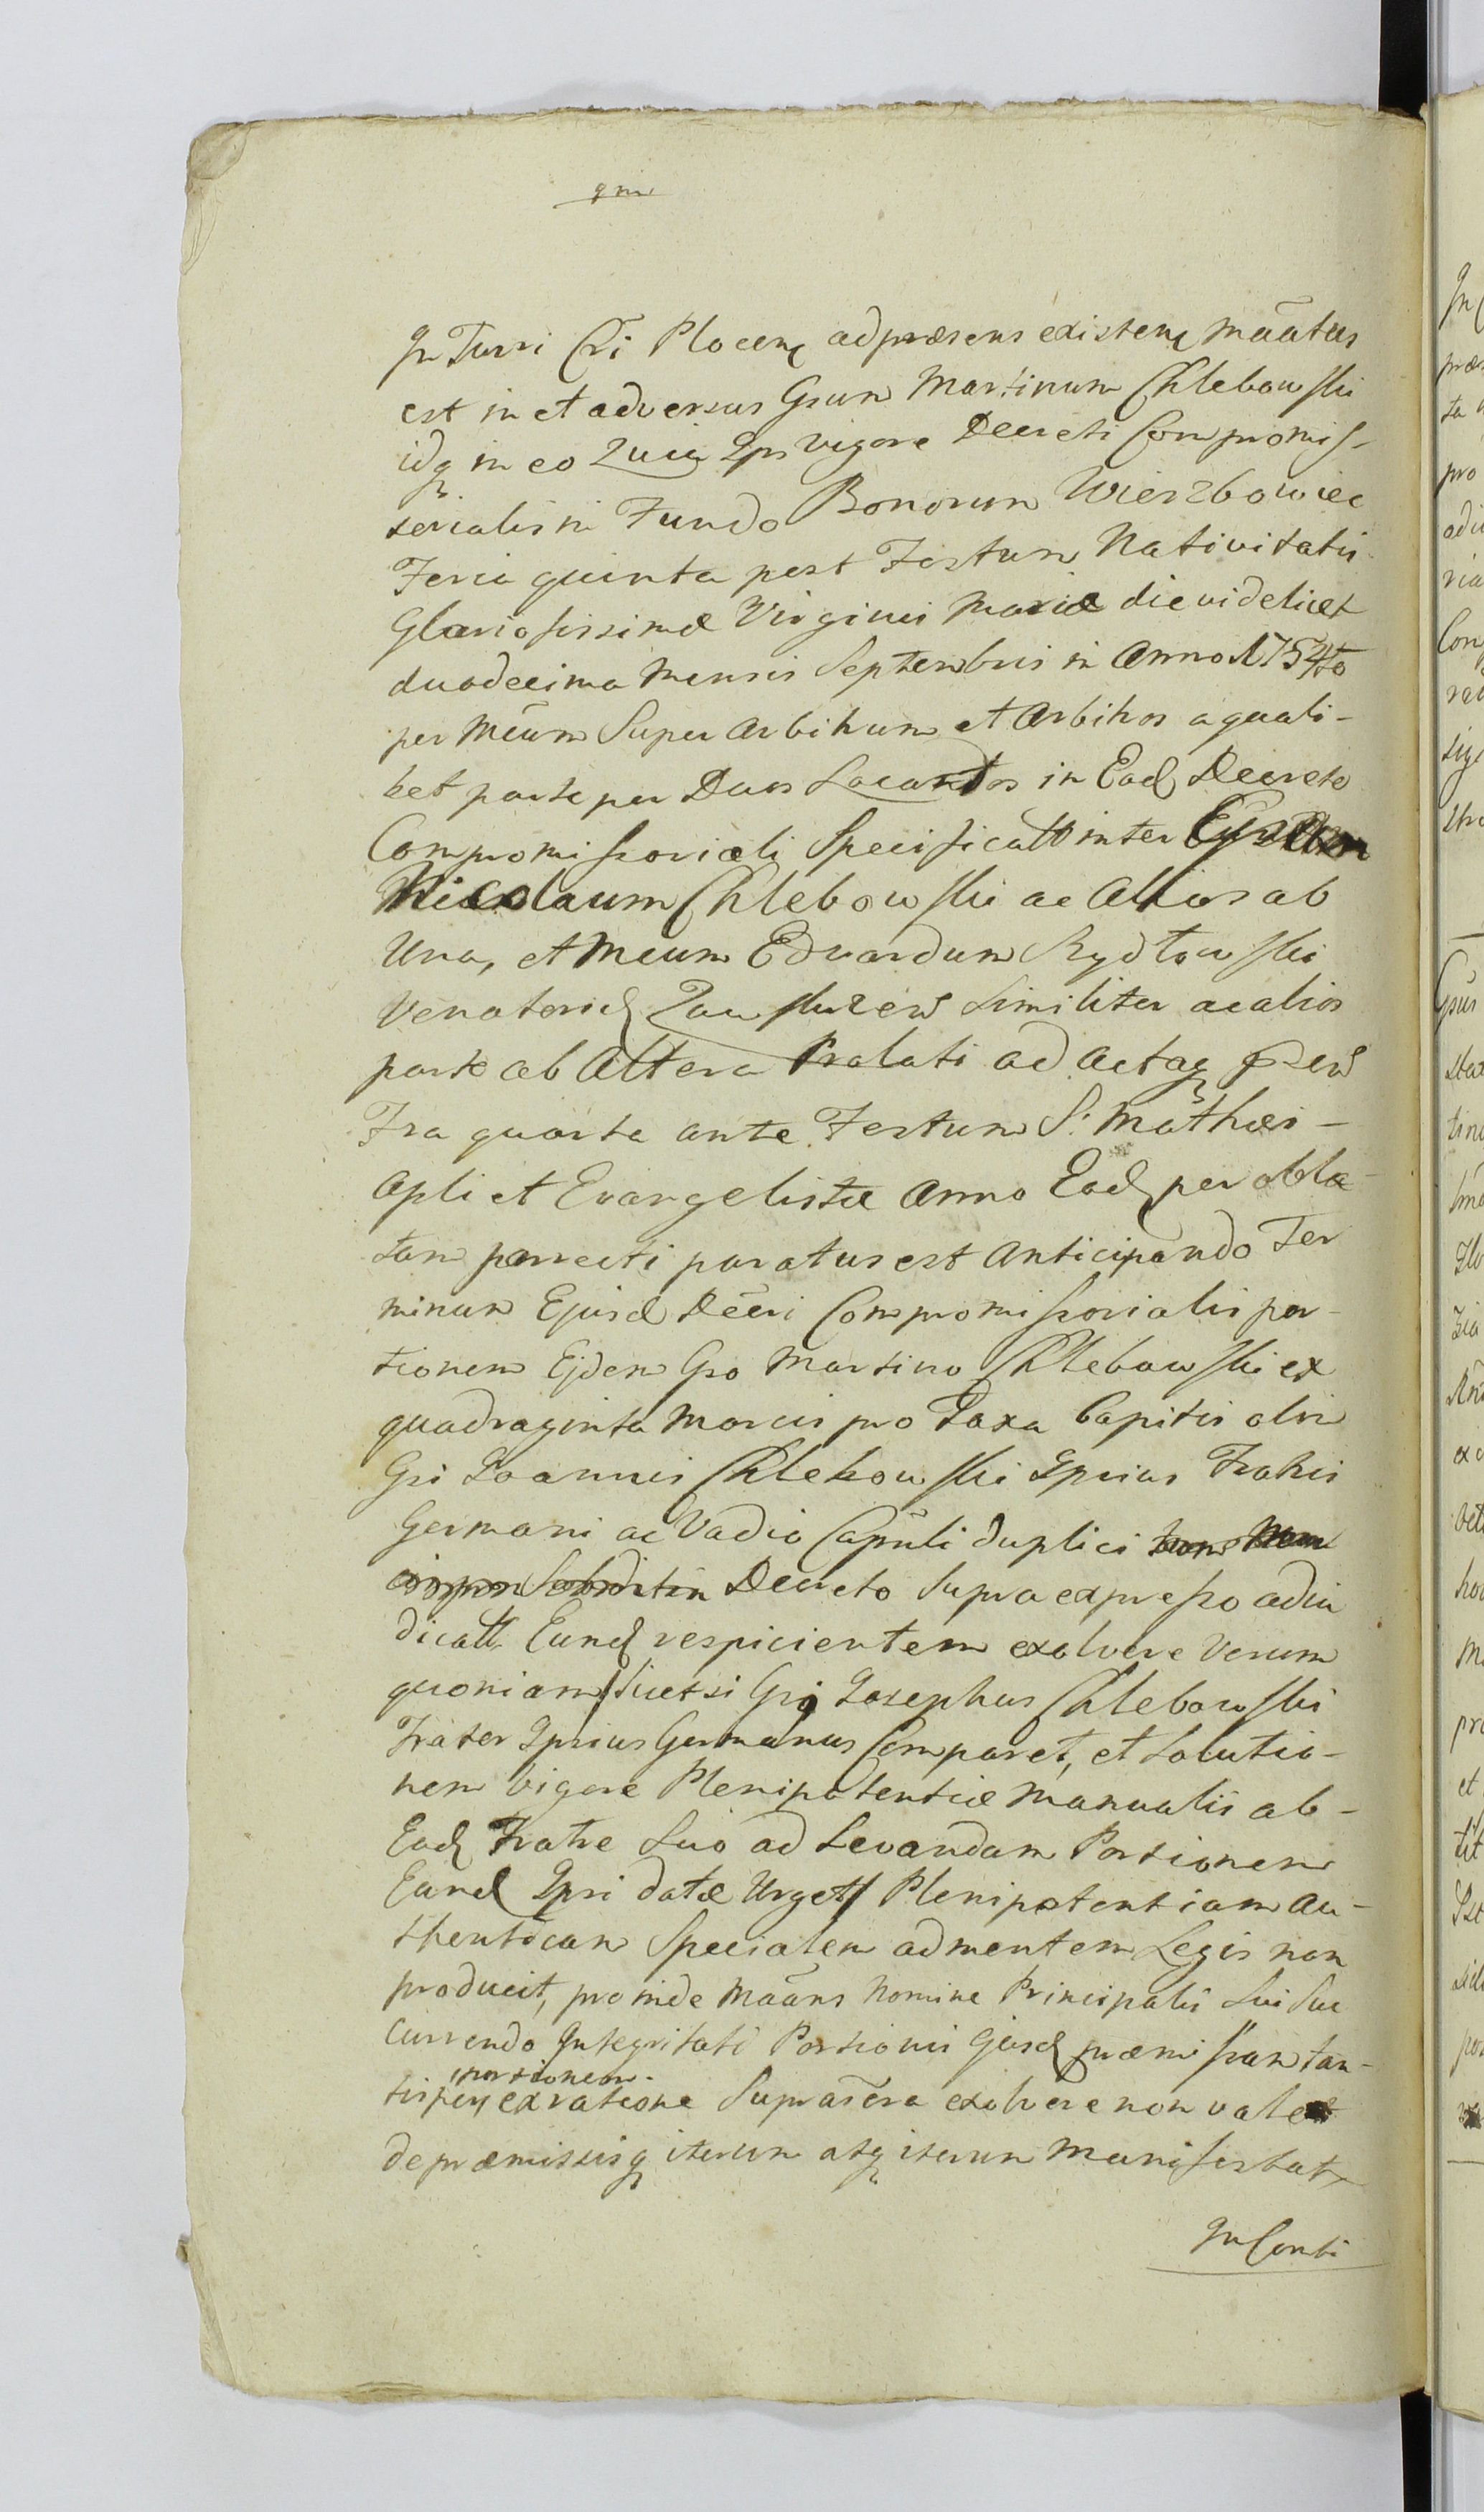 In Turri Cri Plocen adpræsens existen māātus
est in et adversus Gsum Martinum Chlebowski
idq in eo Quia Ips vigore Decreti Compromis-
serialis in Fundo Bonorum Wierzbowiec
Feria quinta post Festum Nativitatis
Gloriosissimæ Virginis Mariæ die videlicet
duodecima Mensis Septembris in Anno 1754to
per Mēum Super Arbitrum et Arbitros a quali-
bet parte per Duos Locantos in Eod Decreto
Compromissoriali Specificatt inter
Nicolaum Chlebowski ac Alios ab
Una, et Meum Edvardum Rydlowski
Venatorid Zawskrzen Similiter ac alios
parte ab Altera Prolati ad actaq præn
Fra quarta ante Festum S. Mathæi -
Apli et Evangelistæ Anno Eod per Obla-
tam porrecti paratus est Anticipando Ter
minum Ejusd Decri Compromissorialis por-
tionem Ejdem Gso Martino Chlebowski ex
quadraginta Marcis pro Taxa Capitis olim
Gsi Joannis Chlebowski Ipsius Fratris
Germani ac Vadio Capituli duplici
Decreto Supra expresso adiu
dicatt Eund respicientem exolvere Verum
quoniam licet si Gsi Josephus Chlebowski
Frater Ipsius Germanus Comparet, et Solutio-
nem vigore Plenipotentiæ Manualis ab -
Eod Fratre Suo ad Levandam Portionem
Eand Ipsi datæ Urget Plenipotentiam Au-
thenticam Specialem ad mentem Legis non
producit, proinde Māāns Nomine Principalis Sui Suc
currendo Integritati Portionis Ejusd præmissam tan-
portionem
tisper ex ratione Suprasēra exolvere non valet
de præmissisq iterum atq iterum Manifestatr
In Conti